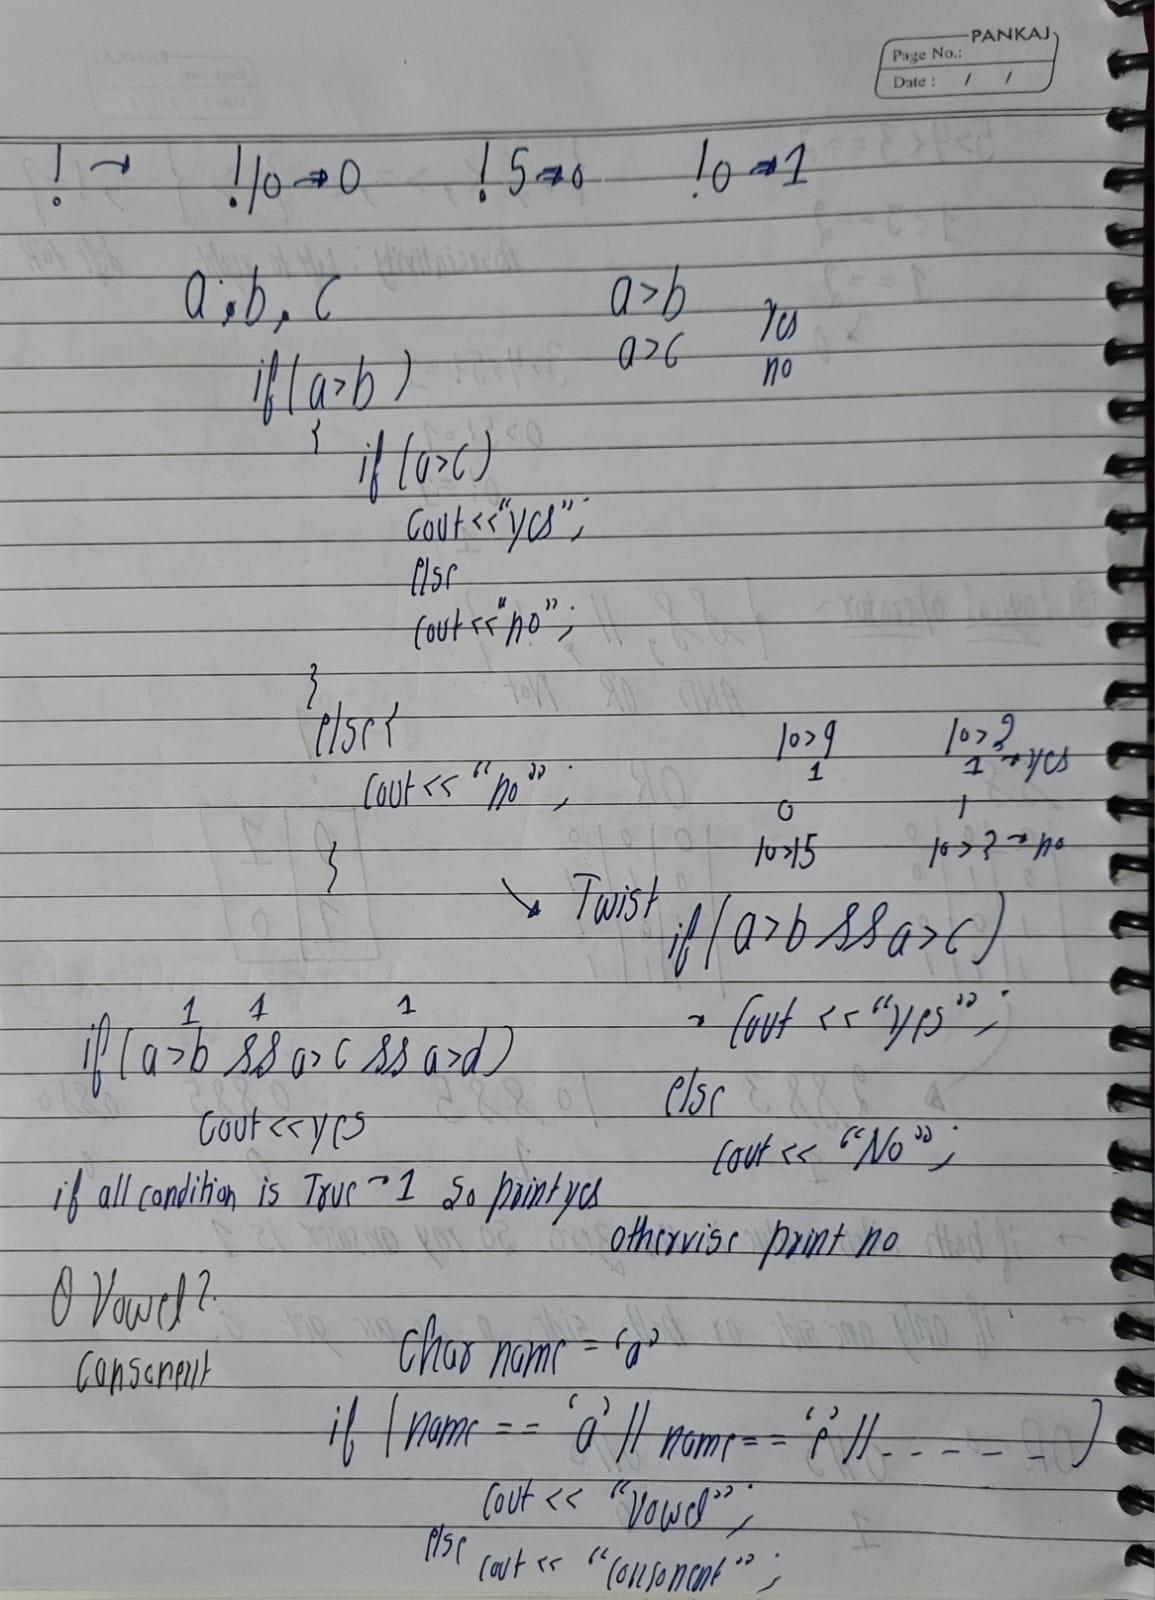 PANKAJ
Page No.:
Date : / /
! → !10 → 0 !5 → 0 !0 → 1
a, b, c
a>b
a>c
yes
no
if(a>b)
{
if(a>c)
cout<<"yes";
else
cout<<"no";
}
else{
cout<<"no";
}
10>9 10>2
1 1 → yes
0 1
10>15 10>2 → no
↘ Twist
if(a>b && a>c)
→ cout <<"yes";
else
cout << "No";
1 1 1
if(a>b && a>c && a>d)
cout<<yes
if all condition is True → 1 so print yes
othervise print no
Q Vowel?
Consonent
Char name = 'a'
if (name == 'a' || name == 'e' || - - - - - )
cout << "Vowel";
else
cout << "Consonent";